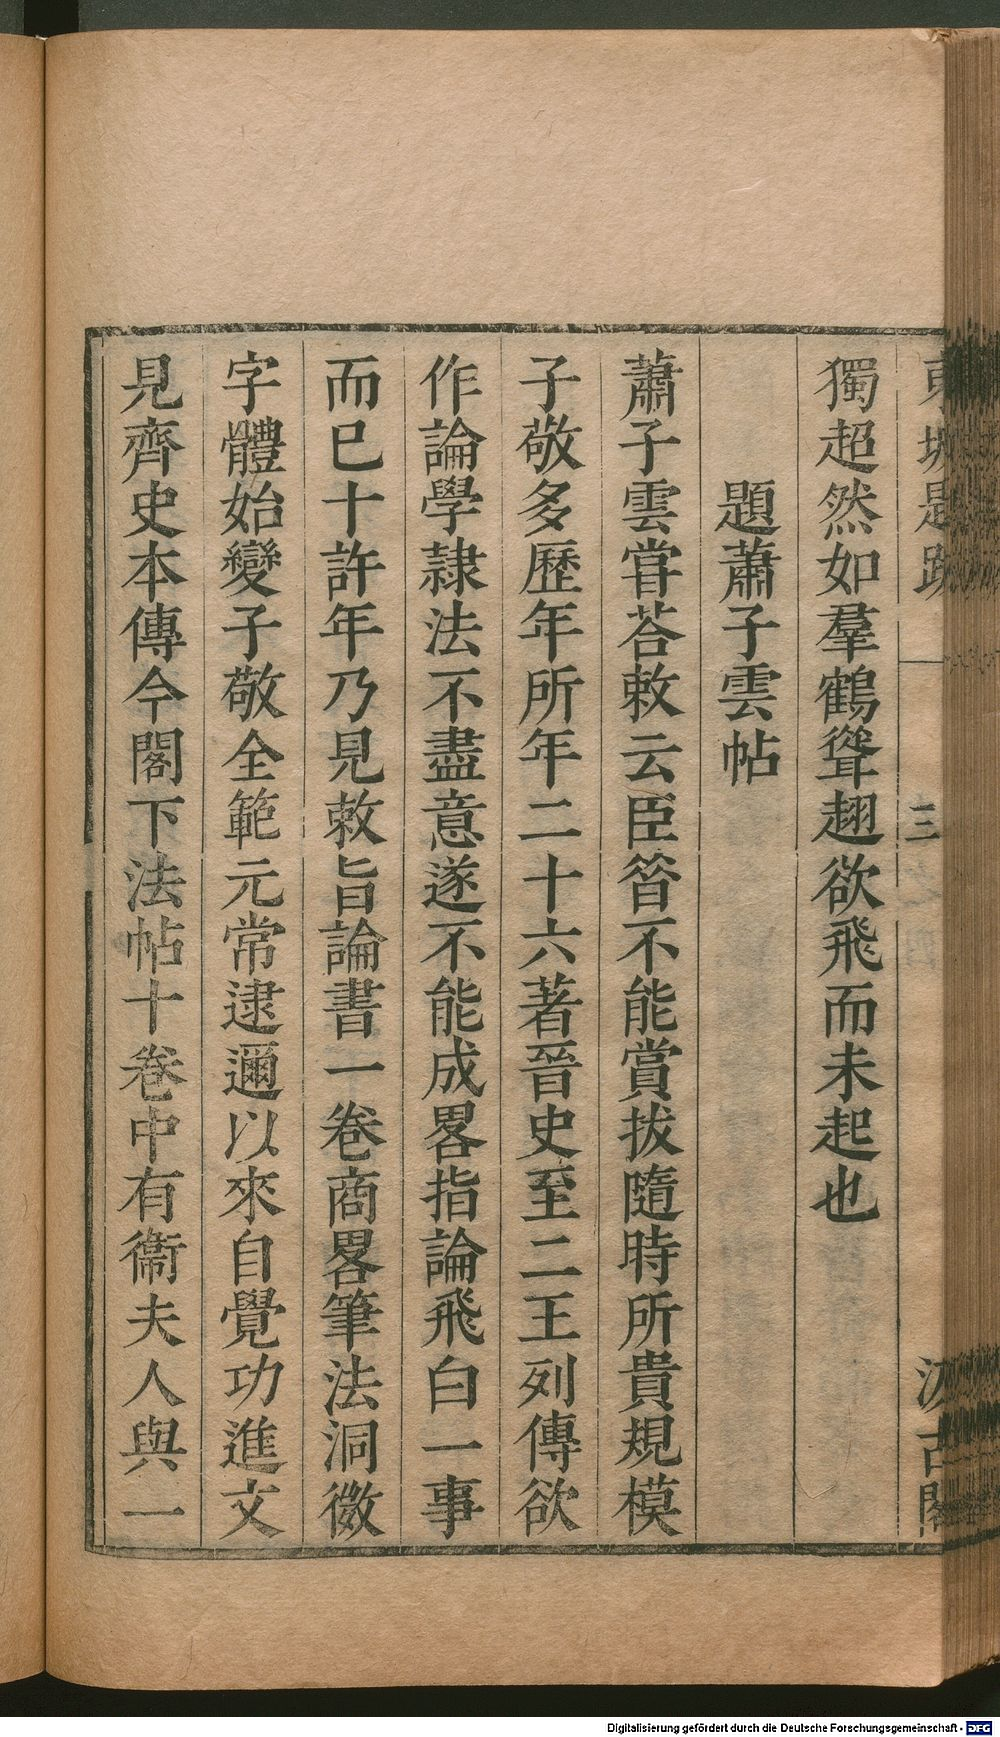 東坡題跋 三 汲古閣
獨超然如羣鶴聳趐欲飛而未起也
題蕭子雲帖
蕭子雲甞荅敕云臣昝不能賞拔隨時所貴規模
子敬多歷年所年二十六著晉史至二王列傳欲
作論學隷法不盡意遂不能成畧指論飛白一事
而已十許年乃見敕旨論書一卷商畧筆法洞微
字體始變子敬全範元常逮邇以來自覺功進文
見齊史本傳今閣下法帖十卷中有衞夫人與一
Digitalisierung gefördert durch die Deutsche Forschungsgemeinschaft - DFG